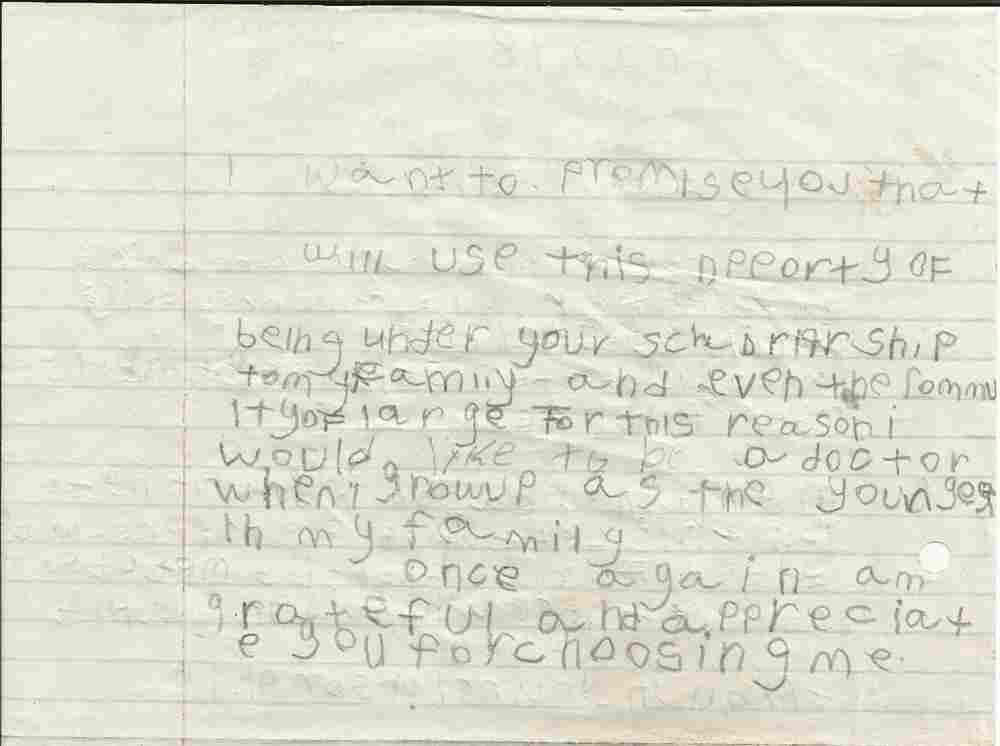 I want to promise you that
will use this opporty OF
being under your schorlarship
to my Family and even the Commu
ity of large For this reason i
would like to be a doctor
when i growup as the younges
in my family
once again am
grateful and appreciat
e you for choosing me.